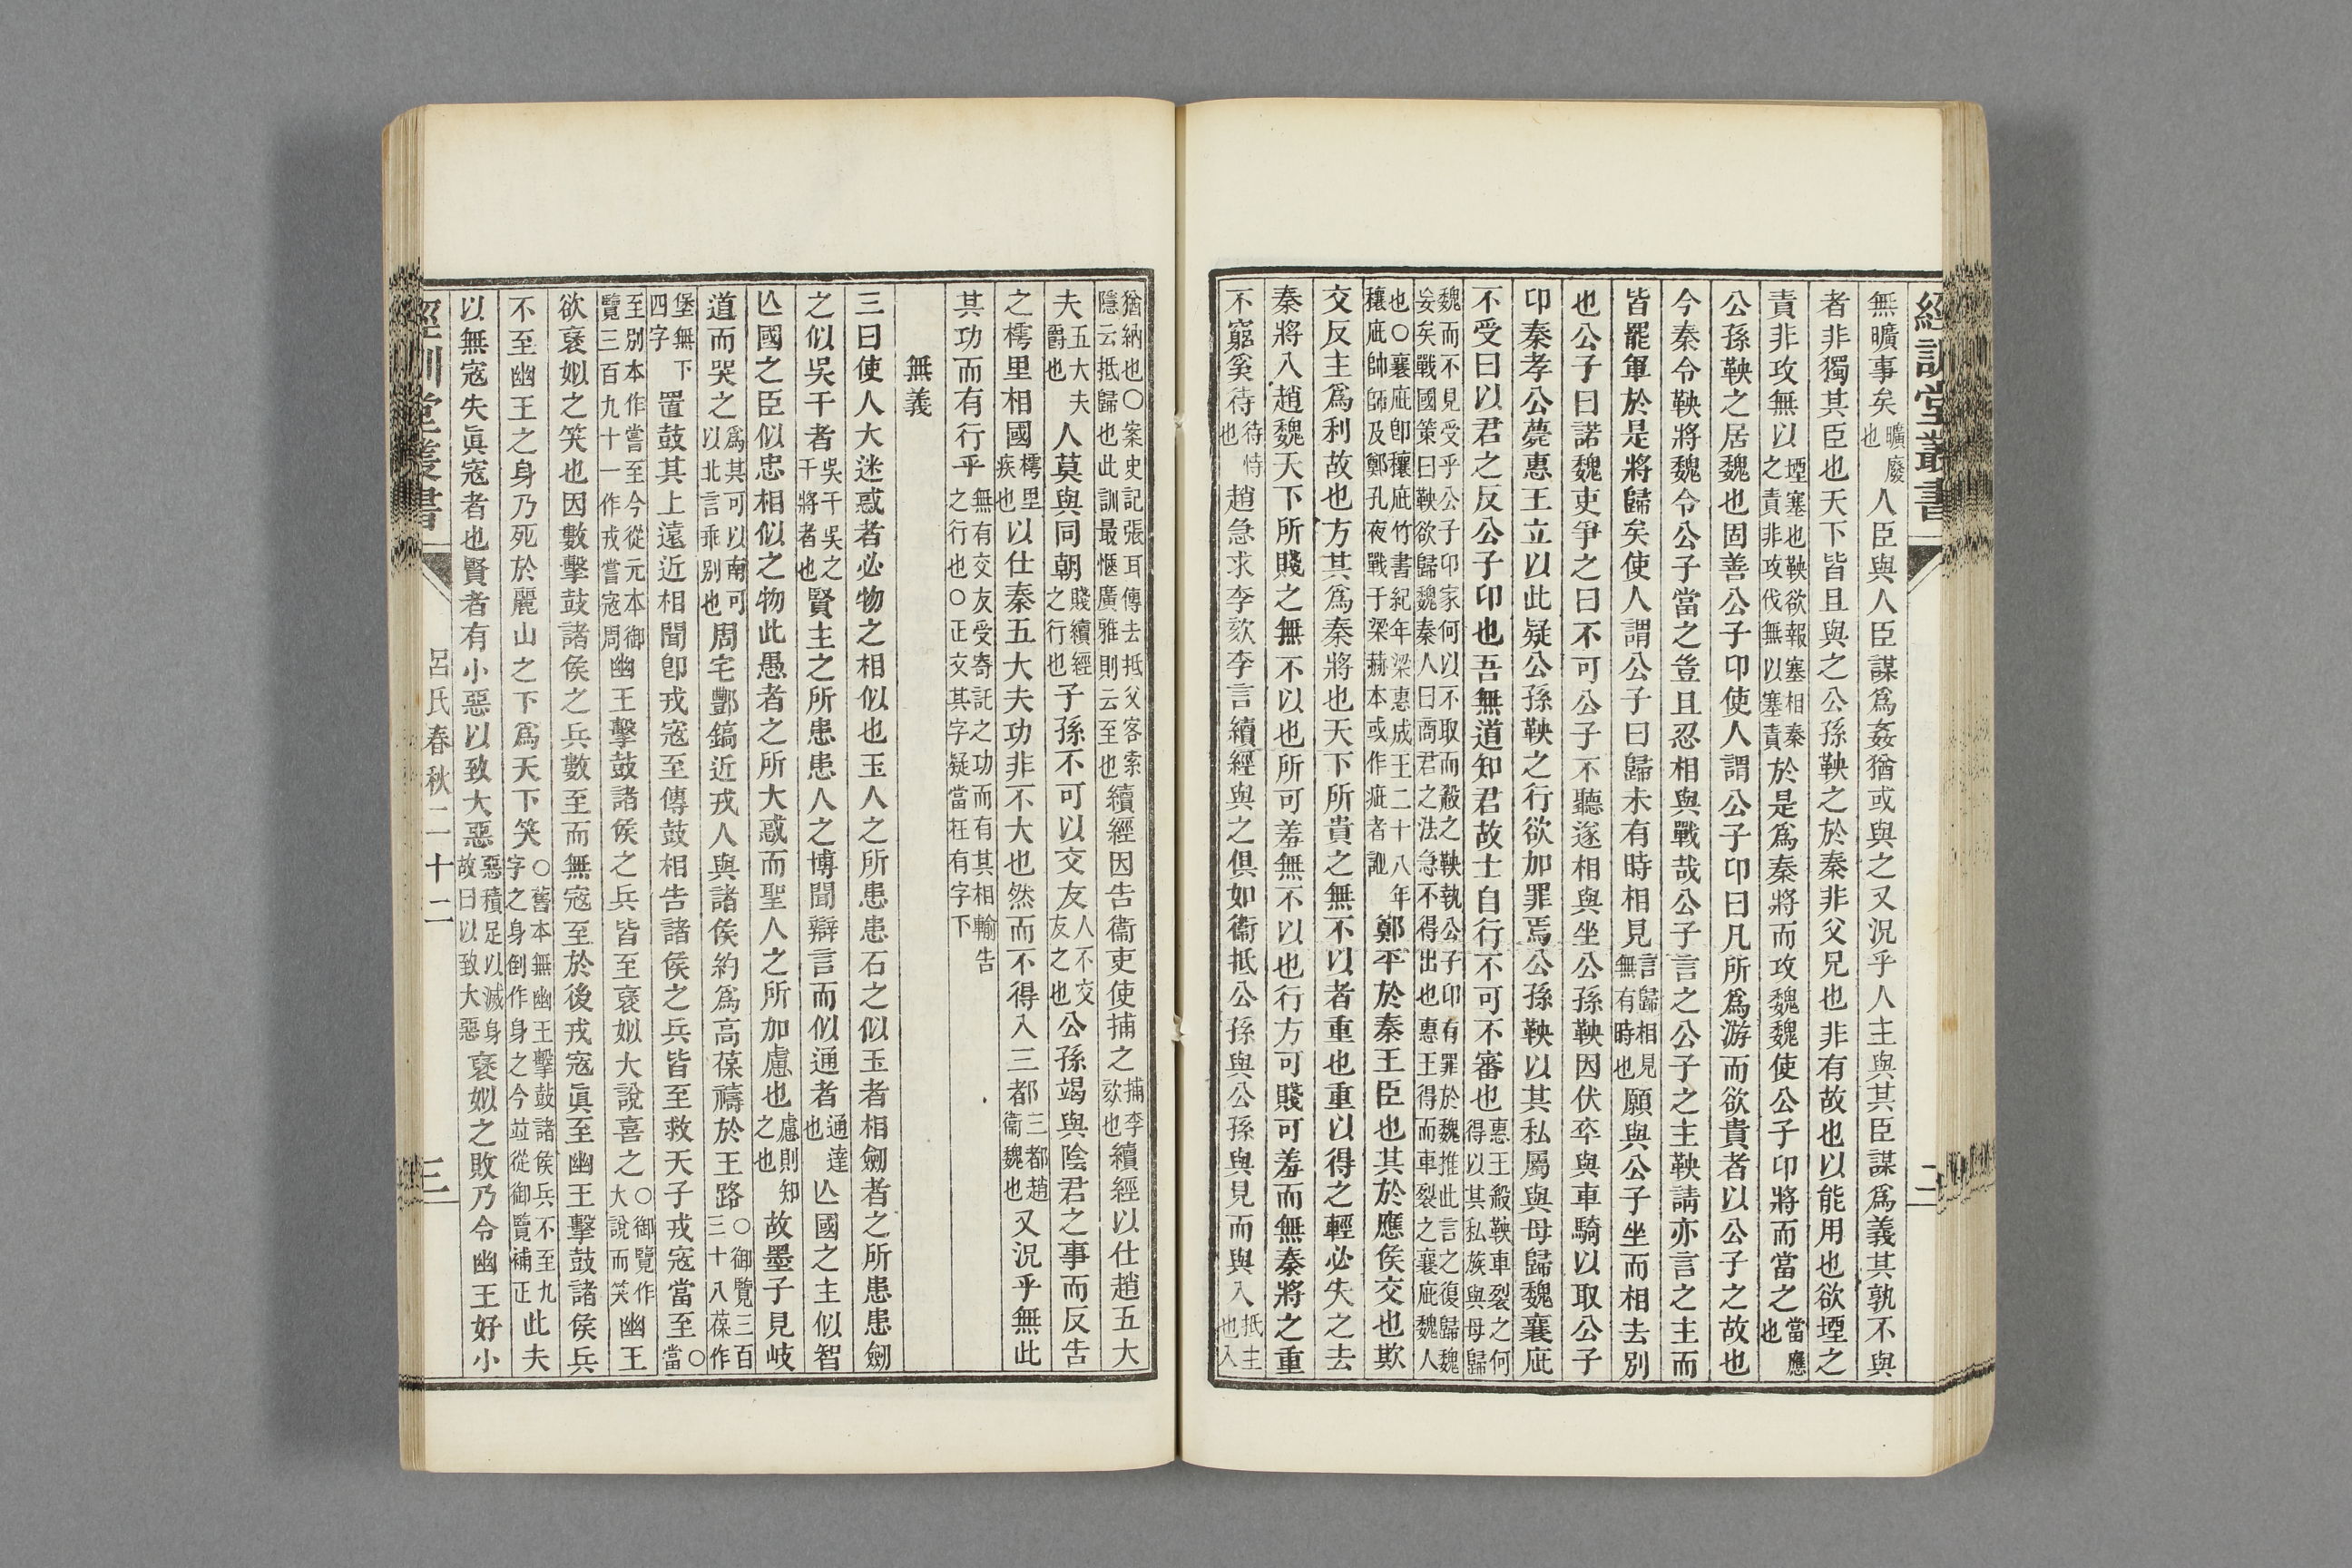 經訓堂叢書
二
無曠事矣曠廢也人臣與人臣謀爲姦猶或與之又況乎人主與其臣謀爲義其孰不與
者非獨其臣也天下皆且與之公孫鞅之於秦非父兄也非有故也以能用也欲堙之
責非攻無以堙塞也鞅欲報塞相秦之責非攻伐無以塞責於是爲秦將而攻魏魏使公子卬將而當之當應也
公孫鞅之居魏也固善公子卬使人謂公子卬曰凡所爲游而欲貴者以公子之故也
今秦令鞅將魏令公子當之豈且忍相與戰哉公子言之公子之主鞅請亦言之主而
皆罷軍於是將歸矣使人謂公子曰歸未有時相見言歸相見無有時也願與公子坐而相去別
也公子曰諾魏吏爭之曰不可公子不聽遂相與坐公孫鞅因伏卒與車騎以取公子
卬秦孝公薨惠王立以此疑公孫鞅之行欲加罪焉公孫鞅以其私屬與母歸魏襄疵
不受曰以君之反公子卬也吾無道知君故士自行不可不審也惠王殺鞅車裂之何得以其私族與母歸
魏而不見受乎公子卬家何以不取而殺之鞅執公子卬有罪於魏推此言之復歸魏妄矣戰國策曰鞅欲歸魏秦人曰商君之法急不得出也惠王得而車裂之襄疵魏人
也○襄疵卽穰疵竹書紀年梁惠成王二十八年穰疵帥師及鄭孔夜戰于梁赫本或作疵者譌鄭平於秦王臣也其於應侯交也欺
交反主爲利故也方其爲秦將也天下所貴之無不以者重也重以得之輕必失之去
秦將入趙魏天下所賤之無不以也所可羞無不以也行方可賤可羞而無秦將之重
不窮奚待待恃也趙急求李欬李言續經與之俱如衞抵公孫與公孫與見而與入抵主也入
猶納也○案史記張耳傳去抵父客索隱云抵歸也此訓最愜廣雅則云至也續經因告衞吏使捕之捕李欬也續經以仕趙五大
夫五大夫爵也人莫與同朝賤續經之行也子孫不可以交友人不交友之也公孫竭與陰君之事而反告
之樗里相國樗里疾也以仕秦五大夫功非不大也然而不得入三都三都趙衞魏也又況乎無此
其功而有行乎無有交友受寄託之功而有其相輸告之行也○正文其字疑當在有字下
無義
三曰使人大迷惑者必物之相似也玉人之所患患石之似玉者相劒者之所患患劒
之似吳干者吳干吳之干將者也賢主之所患患人之博聞辯言而似通者通達也亾國之主似智
亾國之臣似忠相似之物此愚者之所大惑而聖人之所加慮也慮則知之也故墨子見岐
道而哭之爲其可以南可以北言乖別也周宅酆鎬近戎人與諸侯約爲高葆禱於王路○御覽三百三十八葆作
堡無下四字置鼓其上遠近相聞卽戎寇至傳鼓相告諸侯之兵皆至救天子戎寇當至○當
至別本作嘗至今從元本御覽三百九十一作戎嘗寇周幽王擊鼓諸侯之兵皆至褒姒大說喜之○御覽作大說而笑幽王
欲褒姒之笑也因數擊鼓諸侯之兵數至而無寇至於後戎寇眞至幽王擊鼓諸侯兵
不至幽王之身乃死於麗山之下爲天下笑○舊本無幽王擊鼓諸侯兵不至九字之身倒作身之今竝從御覽補正此夫
以無寇失眞寇者也賢者有小惡以致大惡惡積足以滅身故曰以致大惡褒姒之敗乃令幽王好小
經訓堂叢書
呂氏春秋二十二
三